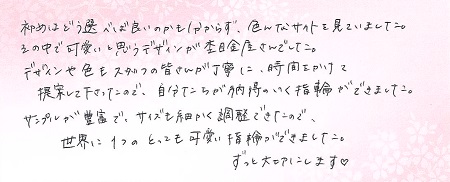 初めはどう選べば良いのかも分からず、色んなサイトを見ていました。
その中で可愛いと思うデザインが杢目金屋さんでした。
デザインや色もスタッフの皆さんが丁寧に、時間をかけて
提案して下さったので、自分たちが納得のいく指輪ができました。
サンプルが豊富で、サイズも細かく調整できたので、
世界に1つのとっても可愛い指輪ができました。
ずっと大切にします♡